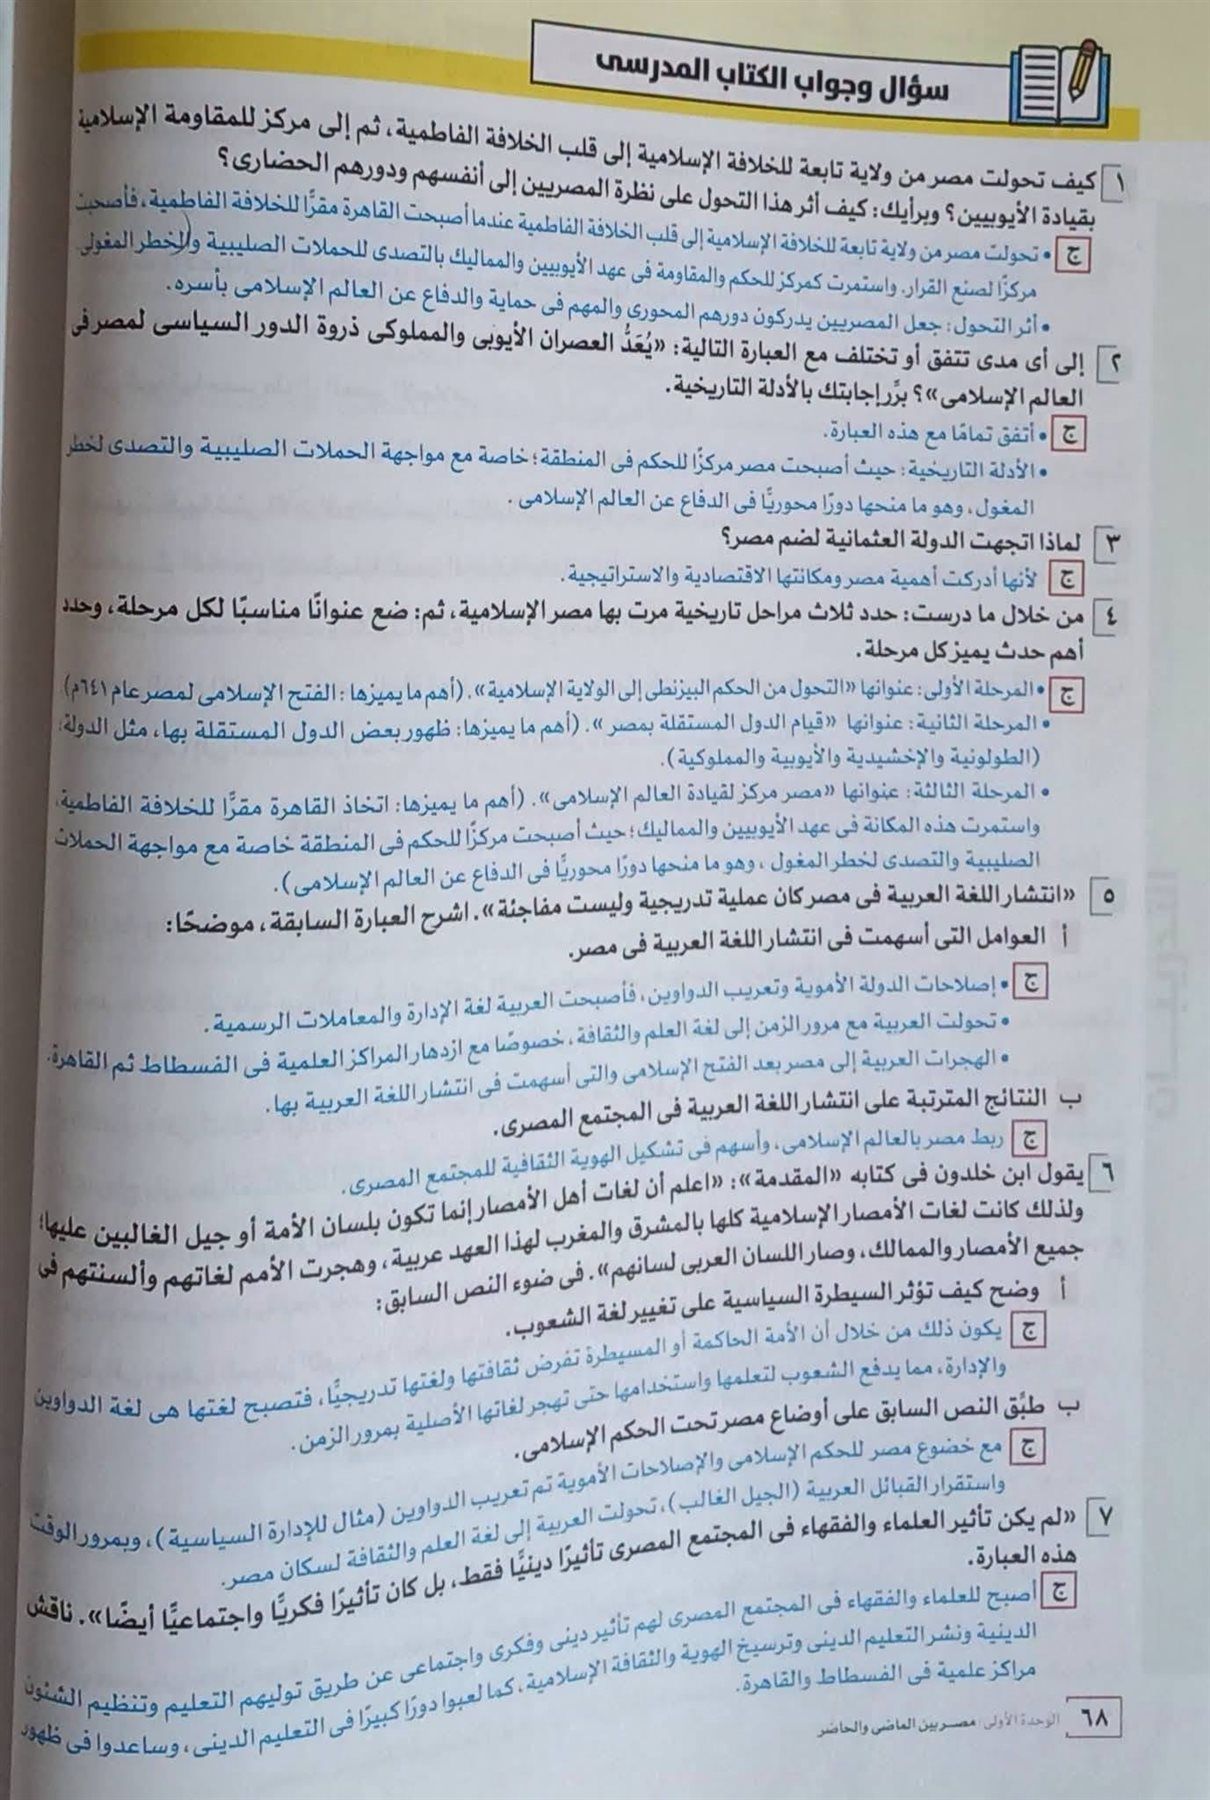 سؤال وجواب الكتاب المدرسى
١ كيف تحولت مصر من ولاية تابعة للخلافة الإسلامية إلى قلب الخلافة الفاطمية، ثم إلى مركز للمقاومة الإسلامية
بقيادة الأيوبيين؟ وبرأيك: كيف أثر هذا التحول على نظرة المصريين إلى أنفسهم ودورهم الحضارى؟
ج • تحولت مصر من ولاية تابعة للخلافة الإسلامية إلى قلب الخلافة الفاطمية عندما أصبحت القاهرة مقرًّا للخلافة الفاطمية، فأصبحت
مركزًا لصنع القرار. واستمرت كمركز للحكم والمقاومة فى عهد الأيوبيين والمماليك بالتصدى للحملات الصليبية والخطر المغولى.
• أثر التحول: جعل المصريين يدركون دورهم المحورى والمهم فى حماية والدفاع عن العالم الإسلامى بأسره.
٢ إلى أى مدى تتفق أو تختلف مع العبارة التالية: «يُعَدُّ العصران الأيوبى والمملوكى ذروة الدور السياسى لمصر فى
العالم الإسلامى»؟ برِّر إجابتك بالأدلة التاريخية.
ج • أتفق تمامًا مع هذه العبارة.
• الأدلة التاريخية: حيث أصبحت مصر مركزًا للحكم فى المنطقة؛ خاصة مع مواجهة الحملات الصليبية والتصدى لخطر
المغول، وهو ما منحها دورًا محوريًّا فى الدفاع عن العالم الإسلامى.
٣ لماذا اتجهت الدولة العثمانية لضم مصر؟
ج لأنها أدركت أهمية مصر ومكانتها الاقتصادية والاستراتيجية.
٤ من خلال ما درست: حدد ثلاث مراحل تاريخية مرت بها مصر الإسلامية، ثم: ضع عنوانًا مناسبًا لكل مرحلة، وحدد
أهم حدث يميز كل مرحلة.
ج • المرحلة الأولى: عنوانها «التحول من الحكم البيزنطى إلى الولاية الإسلامية». (أهم ما يميزها: الفتح الإسلامى لمصر عام ٦٤١م)
• المرحلة الثانية: عنوانها «قيام الدول المستقلة بمصر». (أهم ما يميزها: ظهور بعض الدول المستقلة بها، مثل الدولة:
(الطولونية والإخشيدية والأيوبية والمملوكية).
• المرحلة الثالثة: عنوانها «مصر مركز لقيادة العالم الإسلامى». (أهم ما يميزها: اتخاذ القاهرة مقرًّا للخلافة الفاطمية،
واستمرت هذه المكانة فى عهد الأيوبيين والمماليك؛ حيث أصبحت مركزًا للحكم فى المنطقة خاصة مع مواجهة الحملات
الصليبية والتصدى لخطر المغول، وهو ما منحها دورًا محوريًّا فى الدفاع عن العالم الإسلامى).
٥ «انتشار اللغة العربية فى مصر كان عملية تدريجية وليست مفاجئة». اشرح العبارة السابقة، موضحًا:
أ العوامل التى أسهمت فى انتشار اللغة العربية فى مصر.
ج • إصلاحات الدولة الأموية وتعريب الدواوين، فأصبحت العربية لغة الإدارة والمعاملات الرسمية.
• تحولت العربية مع مرور الزمن إلى لغة العلم والثقافة، خصوصًا مع ازدهار المراكز العلمية فى الفسطاط ثم القاهرة.
• الهجرات العربية إلى مصر بعد الفتح الإسلامى والتى أسهمت فى انتشار اللغة العربية بها.
ب النتائج المترتبة على انتشار اللغة العربية فى المجتمع المصرى.
ج ربط مصر بالعالم الإسلامى، وأسهم فى تشكيل الهوية الثقافية للمجتمع المصرى.
٦ يقول ابن خلدون فى كتابه «المقدمة»: «اعلم أن لغات أهل الأمصار إنما تكون بلسان الأمة أو جيل الغالبين عليها؛
ولذلك كانت لغات الأمصار الإسلامية كلها بالمشرق والمغرب لهذا العهد عربية، وهجرت الأمم لغاتهم وألسنتهم فى
جميع الأمصار والممالك، وصار اللسان العربى لسانهم». فى ضوء النص السابق:
أ وضح كيف تؤثر السيطرة السياسية على تغيير لغة الشعوب.
ج يكون ذلك من خلال أن الأمة الحاكمة أو المسيطرة تفرض ثقافتها ولغتها تدريجيًّا، فتصبح لغتها هى لغة الدواوين
والإدارة، مما يدفع الشعوب لتعلمها واستخدامها حتى تهجر لغاتها الأصلية بمرور الزمن.
ب طبِّق النص السابق على أوضاع مصر تحت الحكم الإسلامى.
ج مع خضوع مصر للحكم الإسلامى والإصلاحات الأموية تم تعريب الدواوين (مثال للإدارة السياسية)، وبمرور الوقت
واستقرار القبائل العربية (الجيل الغالب)، تحولت العربية إلى لغة العلم والثقافة لسكان مصر.
٧ «لم يكن تأثير العلماء والفقهاء فى المجتمع المصرى تأثيرًا دينيًّا فقط، بل كان تأثيرًا فكريًّا واجتماعيًّا أيضًا». ناقش
هذه العبارة.
ج أصبح للعلماء والفقهاء فى المجتمع المصرى لهم تأثير دينى وفكرى واجتماعى عن طريق توليهم التعليم وتنظيم الشئون
الدينية ونشر التعليم الدينى وترسيخ الهوية والثقافة الإسلامية، كما لعبوا دورًا كبيرًا فى التعليم الدينى، وساعدوا فى ظهور
مراكز علمية فى الفسطاط والقاهرة.
٦٨ الوحدة الأولى: مصر بين الماضى والحاضر